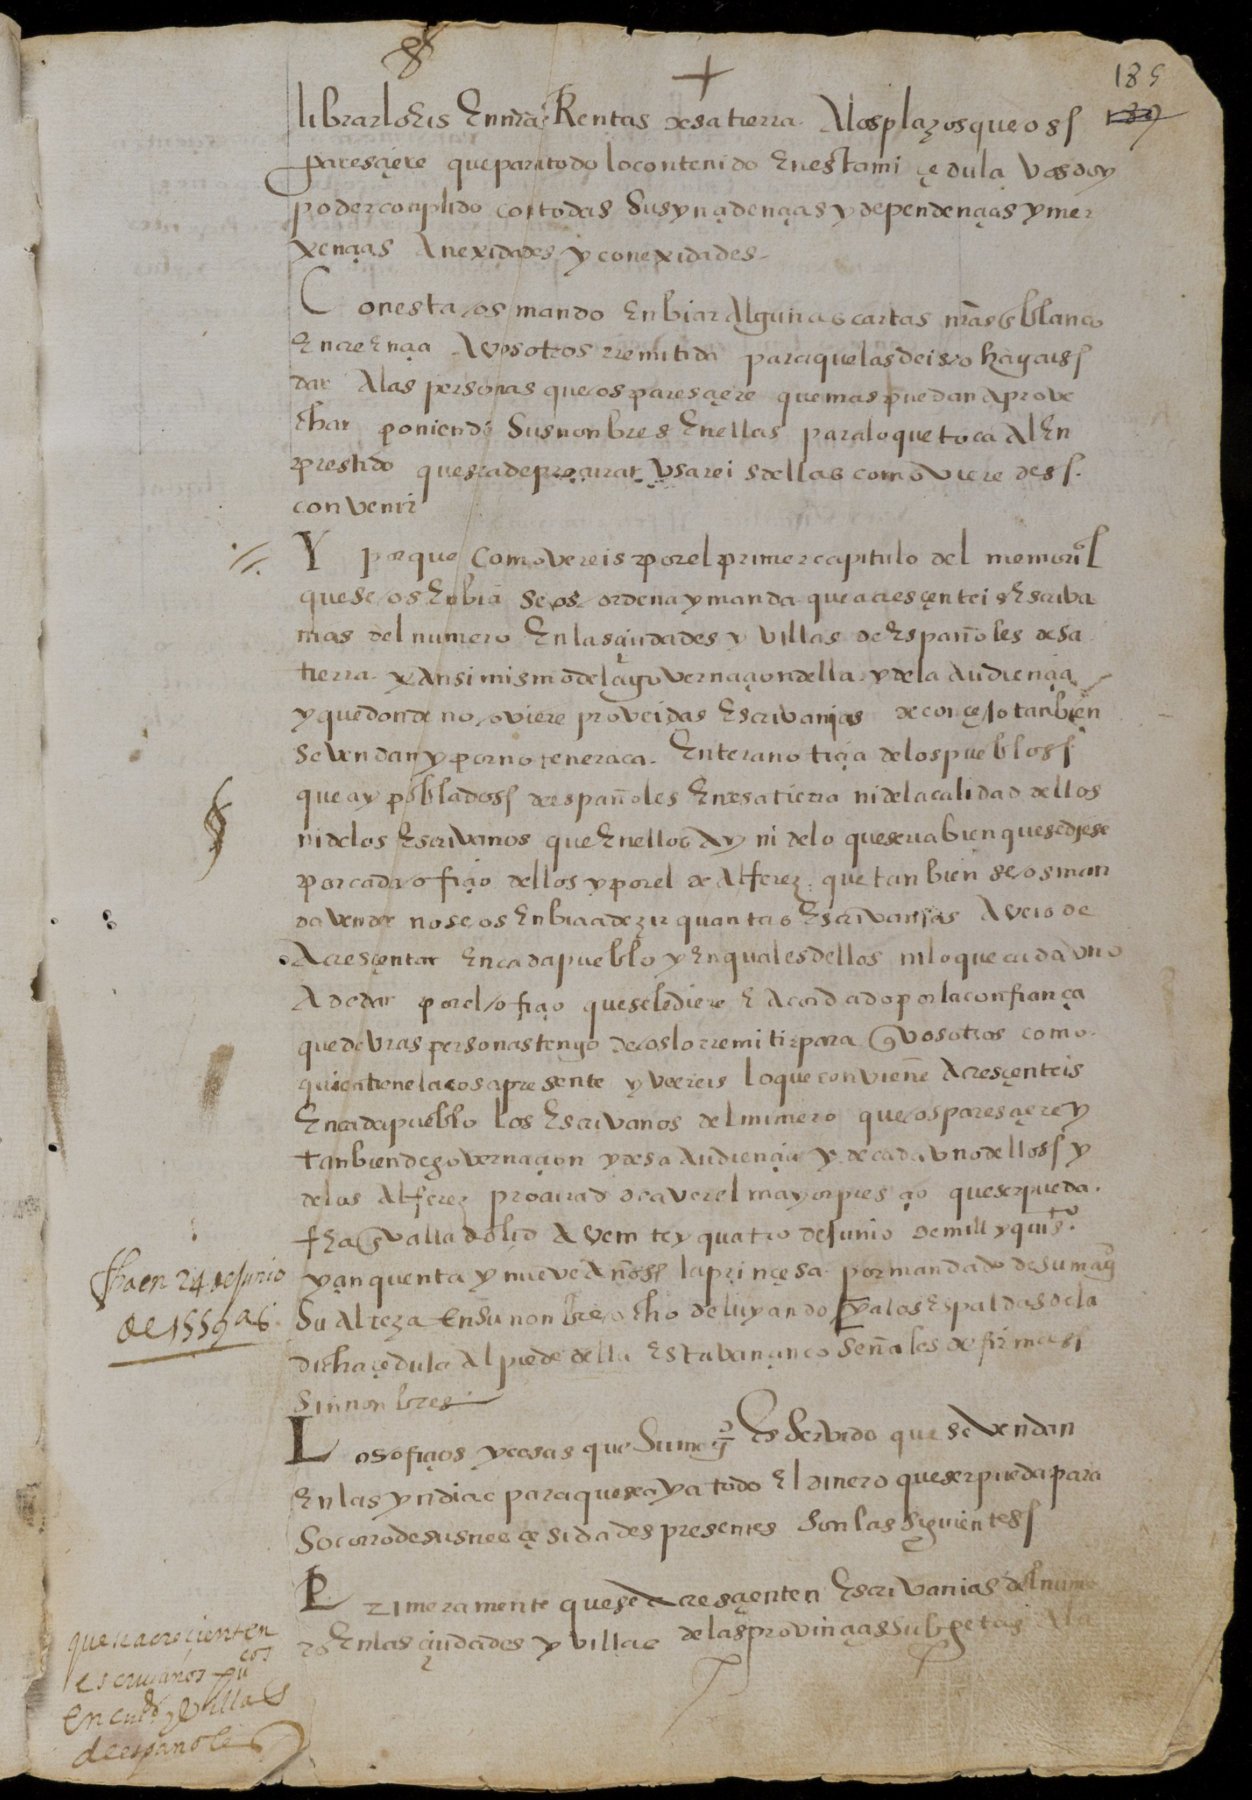 185
librarlo eis En nr̃as Rentas desa tierra. A los plazos que os
paresçiere que para todo lo contenido En esta mi çedula Vos doy
poder conplido con todas Sus ynçidençias y dependençias y mer
xençias Anexidades y conexidades.
Con esta os mando enbiar Algunas cartas nr̃as En blanco
En creEnçia A vosotros rremitida para que las deis o hagais
dar A las personas que os paresçiere que mas puedan Aprove
char poniendo Sus nonbres En ellas para lo que toca Al En
prestido que sea de procurar Usareis dellas como Vieredes
convenir
Y porque como vereis por el primer capitulo del memorial
que se os Enbia se os ordena y manda que acresçenteis Escriva
nias del numero En las çiudades y Villas de Españoles desa
tierra y Ansimismo de la governaçion della y de la Audiençia
y que donde no oviere proveidas Escrivanias de conçejo tanbien
se vendan y por no tener aca Entera notiçia de los pueblos
que ay poblados de españoles En esa tierra ni de la calidad dellos
ni de los Escrivanos que En ellos Ay ni de lo que sera bien que se diese
por cada ofiçio dellos y por el de Alferez que tanbien se os man
da vender no se os Enbia a dezir quantas Escrivanias Aveis de
Acresçentar En cada pueblo y En quales dellos ni lo que cada vno
A de dar por el ofiçio que se le diere E Acordado por la confiança
que de vras personas tengo de os lo rremitir para q̃ vosotros como
quien tiene la cosa presente y vereis lo que conviene Acresçenteis
En cada pueblo los Escrivanos del numero que os paresçiere y
tanbien de governaçion y desa Audiençia y de cada vno dellos y
de los Alferez procurad de aver el mayor presçio que ser pueda.
fha En valladolid A veinte y quatro de junio de mill y quis.
y çinquenta y nueve Años la prinçesa por mandado de su mag
Su Alteza En su nonbre ocho de luyando y a las Espaldas de la
dicha çedula Al pie de della Estavan çinco Señales de firmas
sin nonbres
fha en 24 de junio
de 1559 as
Los ofiçios y cosas que Su mag Es Servido que se Vendan
En las yndias para que se aya todo El dinero que ser pueda para
Socorro de sus neçesidades presentes son las siguientes
Primeramente que se Acresçienten Escrivanias del nume
ro En las çiudades y villas de las provinçias subgetas A la
que se acreçienten
escriuanos pu
cos
en ciud y Villas
de españoles